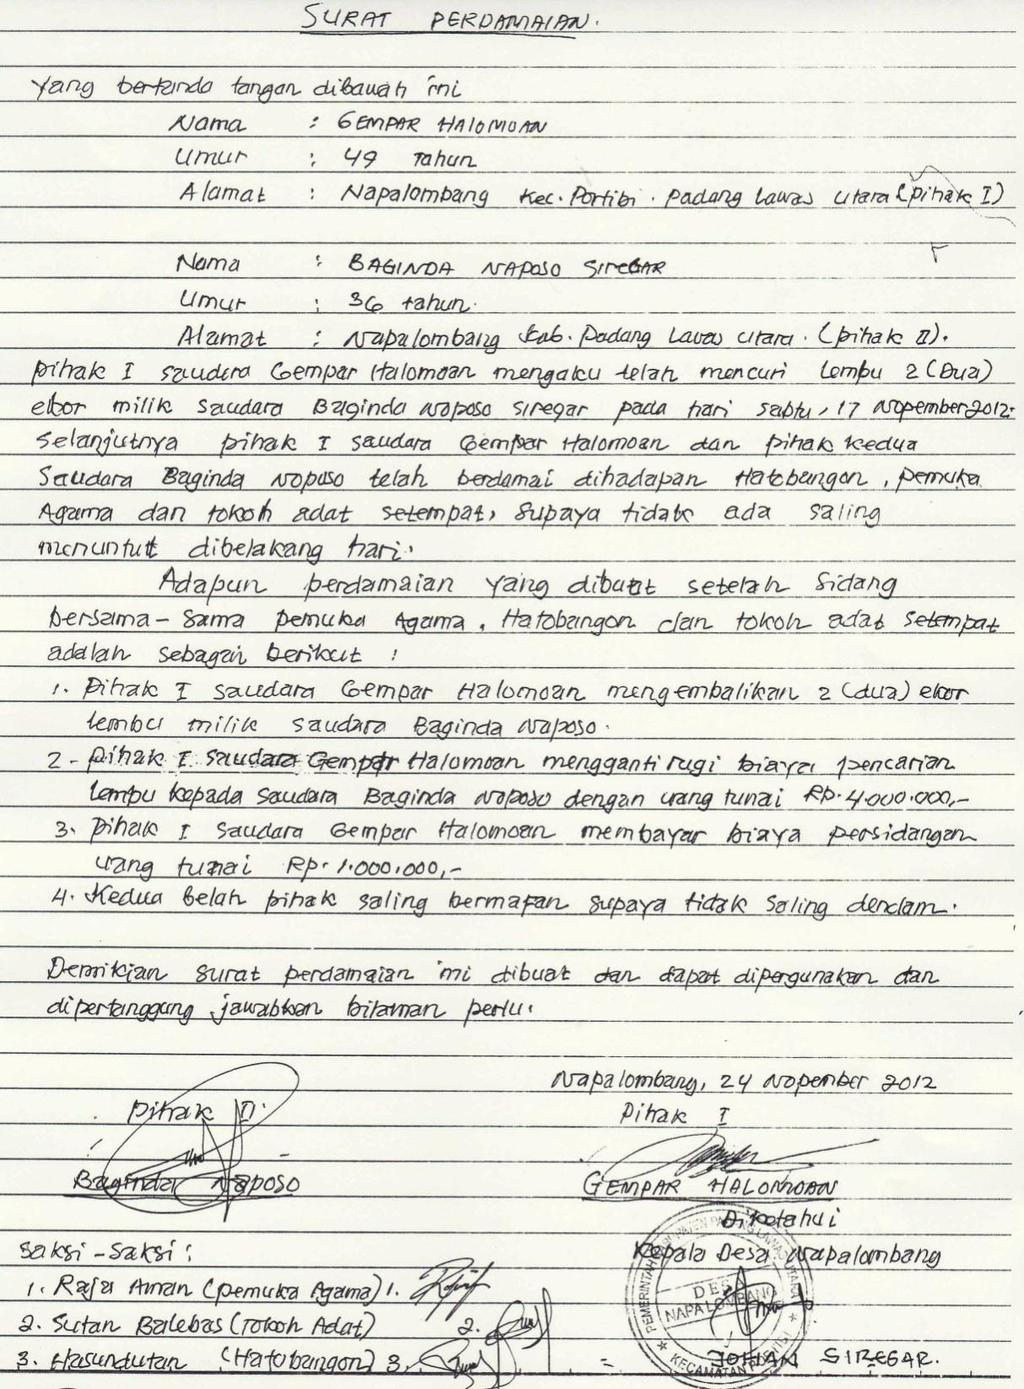 SURAT PERDAMAIAN.
Yang bertanda tangan dibawah ini
Nama : GEMPAR HALOMOAN
Umur : 49 Tahun
Alamat : Napalombang Kec. Portibi . Padang Lawas Utara (Pihak I)
Nama : BAGINDA NAPOSO SIREGAR
Umur : 36 tahun.
Alamat : Napalombang Kab. Padang Lawas Utara . (pihak II).
pihak I saudara Gempar Halomoan mengaku telah mencuri Lembu 2 (Dua)
ekor milik saudara Baginda Noposo Siregar pada hari sabtu, 17 Nopember 2012.
Selanjutnya pihak I saudara Gempar Halomoan dan pihak kedua
Saudara Baginda Noposo telah berdamai dihadapan Hatobangon, pemuka
Agama dan tokoh adat setempat, supaya tidak ada saling
menuntut dibelakang hari.
Adapun perdamaian yang dibuat setelah sidang
bersama-sama pemuka Agama, Hatobangon dan tokoh adat setempat
adalah sebagai berikut :
1. Pihak I saudara Gempar Halomoan mengembalikan 2 (dua) ekor
lembu milik saudara Baginda Naposo.
2- pihak I saudara Gempar Halomoan mengganti rugi biaya pencarian
Lempu kepada saudara Baginda Noposo dengan uang tunai Rp. 4.000.000,-
3. pihak I saudara Gempar Halomoan membayar biaya persidangan
uang tunai Rp. 1.000.000,-
4. Kedua belah pihak saling bermafan supaya tidak saling dendam.
Demikian surat perdamaian ini dibuat dan dapat dipergunakan dan
dipertanggung jawabkan bilaman perlu.
Napalombang, 24 Nopember 2012
Pihak II. Pihak I
Baginda Naposo GEMPAR HALOMOAN
Diketahui
Saksi-Saksi : Kepala Desa Napalombang
1. Raja Aman (Pemuka Agama) 1.
2. Sutan Balebas (Tokoh Adat) 2.
3. Hasundutan (Hatobangon) 3.
DESA
NAPALOMBANG
JOHAN SIREGAR.